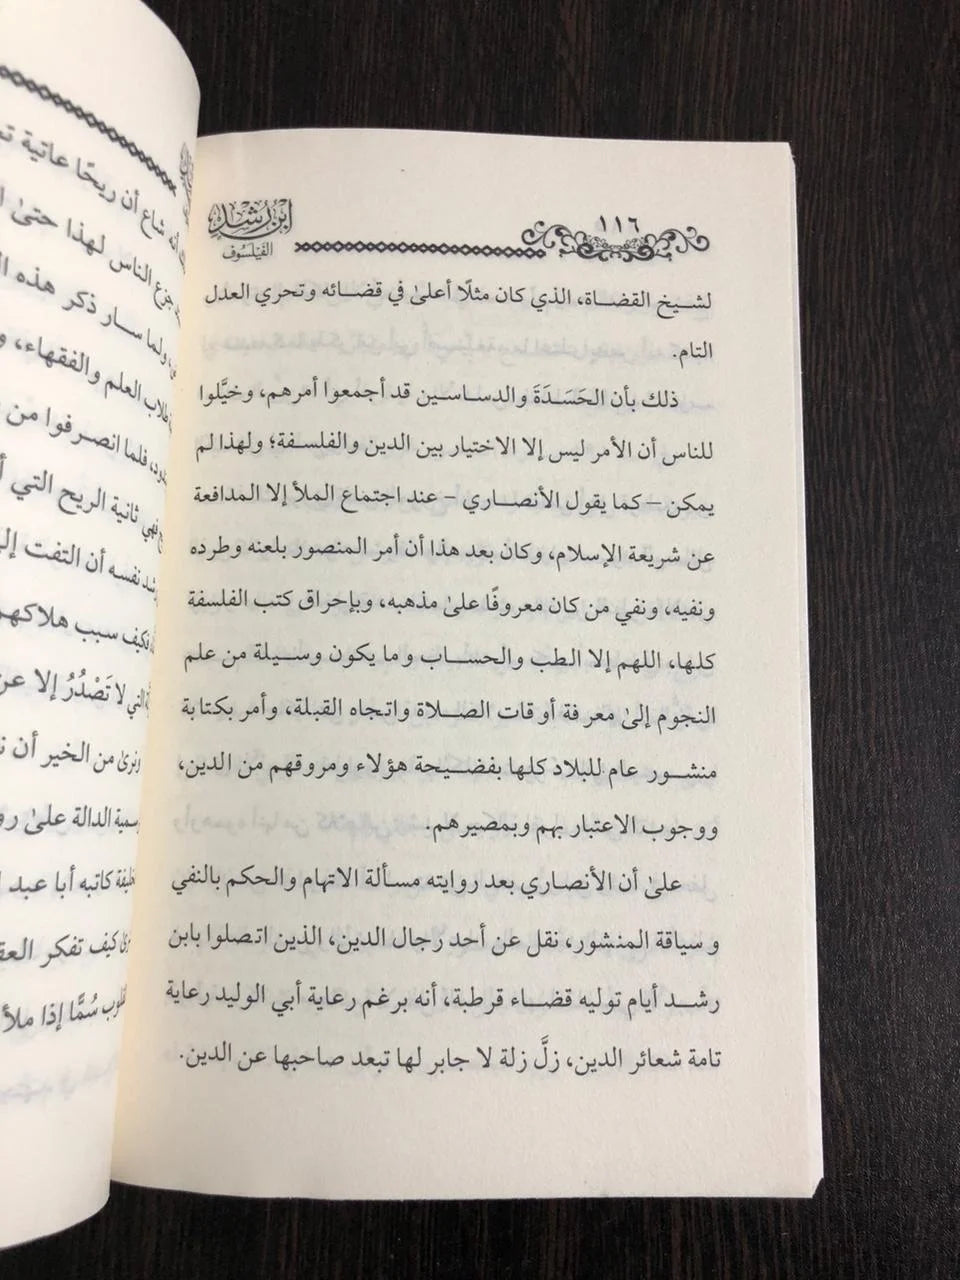 ١١٦
ابن رشد
الفيلسوف
لشيخ القضاة، الذي كان مثلًا أعلىٰ في قضائه وتحري العدل
التام.
ذلك بأن الحَسَدَةَ والدساسين قد أجمعوا أمرهم، وخيَّلوا
للناس أن الأمر ليس إلا الاختيار بين الدين والفلسفة؛ ولهذا لم
يمكن – كما يقول الأنصاري – عند اجتماع الملأ إلا المدافعة
عن شريعة الإسلام، وكان بعد هذا أن أمر المنصور بلعنه وطرده
ونفيه، ونفي من كان معروفًا علىٰ مذهبه، وبإحراق كتب الفلسفة
كلها، اللهم إلا الطب والحساب وما يكون وسيلة من علم
النجوم إلىٰ معرفة أوقات الصلاة واتجاه القبلة، وأمر بكتابة
منشور عام للبلاد كلها بفضيحة هؤلاء ومروقهم من الدين،
ووجوب الاعتبار بهم وبمصيرهم.
علىٰ أن الأنصاري بعد روايته مسألة الاتهام والحكم بالنفي
وسياقة المنشور، نقل عن أحد رجال الدين، الذين اتصلوا بابن
رشد أيام توليه قضاء قرطبة، أنه برغم رعاية أبي الوليد رعاية
تامة شعائر الدين، زلَّ زلة لا جابر لها تبعد صاحبها عن الدين.
أنه شاع أن ريحًا عاتية
جزع الناس لهذا حتىٰ
ولما سار ذكر هذه
طلاب العلم والفقهاء،
فلما انصرفوا من
فهي ثانية الريح التي
نفسه أن التفت
فكيف سبب هلاكهم
التي لا تَصْدُرُ إلا عن
ونرىٰ من الخير أن
الدالة علىٰ
كاتبه أبا عبد
كيف تفكر
سُمًّا إذا ملأ